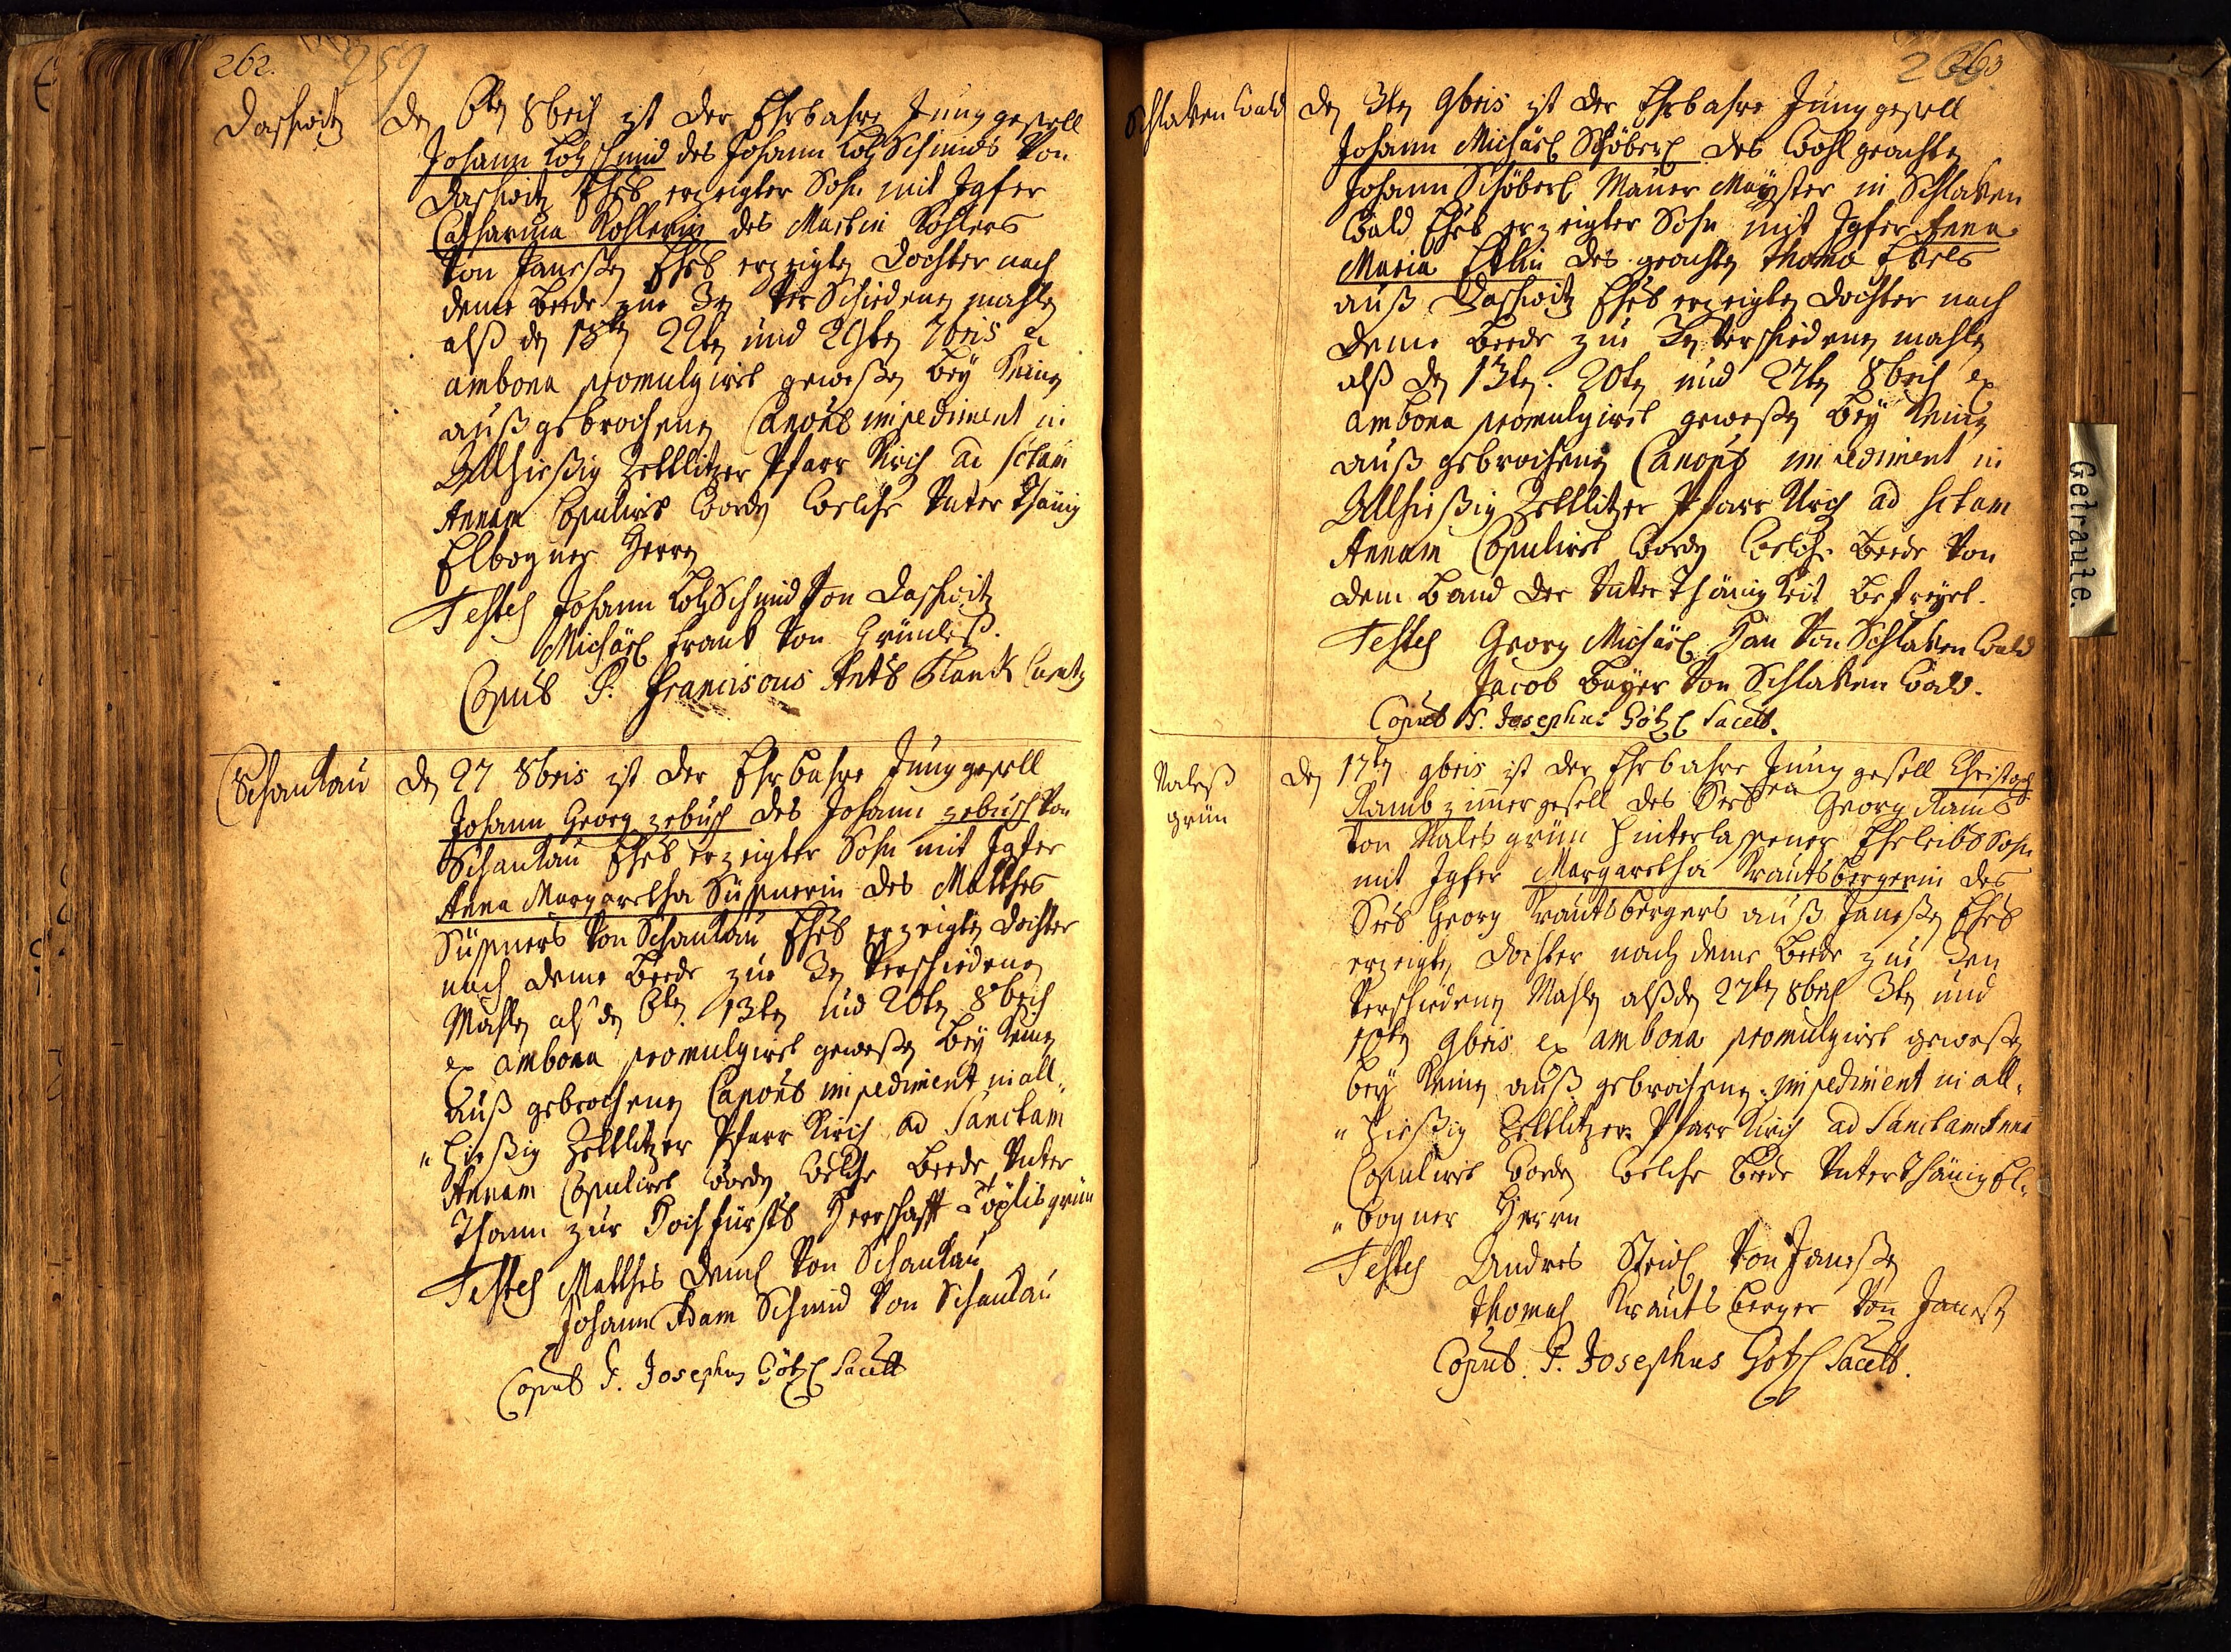 262.
259
Daßwitz
den 6ten 8bris ist der Ehrbahre Junggesell
Johann Lohschmid des Johann LohSchmids Von
Daßwitz Ehel erzeigter Sohn mit Jgfer
Catharina Kohlerin des Martin Kohlers
Von Janeßen Ehel erzeigten Dochter nach
deme beede zue 3en VerSchiedenen mahlen
alß den 15ten 22ten und 29ten 7bris a
ambona promulgiret geweßen bey Keinen
außgebrochenen Canons impediment in
Allhießig Zettlitzer Pfarr Kirch ad sctam
Annam Copulirt worden welche UnterThänig
Elbogner Herrn
Testes Johann LohSchmid Von Daßwitz
Michäel Frank Von Grünles.
Copul P. Franciscus Ants
Schankau
den 27 8bris ist der Ehrbahre Junggesell
Johann Georg zebisch des Johann zebisch Von
Schankau Ehel erzeigter Sohn mit Jgfer
Anna Margaretha Süssnerin des Matthes
Süssners Von Schankau Ehel erzeigten Dochter
nach deme beede zue 3en Verschiedenen
Mahlen alß den 6ten 13ten und 20ten 8bris
ex ambona promulgiret geweßen bey Keinen
auß gebrochenen Canons impediment in all„
„hießig Zettlitzer Pfarr Kirch ad Sanctam
Annam Copuliret worden welche beede Unter
Thann zur Hochfürstl Herrschafft Töplisgrün
Testes Matthes Von Schankau
Johann Adam Schmid Von Schankau
Copul P. Josephus Götzl Sacell
260
263
Schlakenwald
den 3ten 9bris ist der Ehrbahre Junggesell
Johann Michäel Schöberl des Wohl geachten
Johann Schöberl Maurer Mayster in Schlaken
Wald Ehel erzeigter Sohn mit Jgfer Anna
Maria Eklin des geachten Thoma Ekels
auß Daßwitz Ehel erzeigten Dochter nach
deme beede zue 3en Verschiedenen mahlen
alß den 13ten. 20ten und 27ten 8bris ex
ambona promulgiret geweßen bey Keinen
auß gebrochenen Canons impediment in
Allhießig Zettlitzer Pfarr Kirch ad sctam
Annam Copuliret worden welche beede Von
dem Band der UnterThänigKeit befreyet.
Testes Georg Michäel Han Von Schlakenwald
Jacob Bayer Von Schlaken Wald.
Copul P. Josephus Götzl Sacell.
Naleß
grün
den 17ten 9bris ist der Ehrbahre Jung gesell Christoph
Ramb zimmergesell des Seel Georg Rambs
Von Nalesgrün hinterlassener Eheleibl Sohn
mit Jgfer Margaretha Krautsbergerin des
Seel Georg Krautsbergers auß Janeßen Ehel
erzeigten Dochter nach deme beede zue 3en
Verschiedenen Mahlen alß den 27ten 8bris 3ten und
10ten 9bris ex ambona promulgiret geweßen
bey Keinen auß gebrochenen impediment in all„
„hießig Zettlitzer Pfarr Kirch ad Sanctam Annam
Copuliret worden welche beede UnterThänig El„
„bogner Herrn
Testes Andres Von Janeßen
Thomas Krautsberger Von Janeßen
Copul. P. Josephus Götzl Sacell.
Getraute.